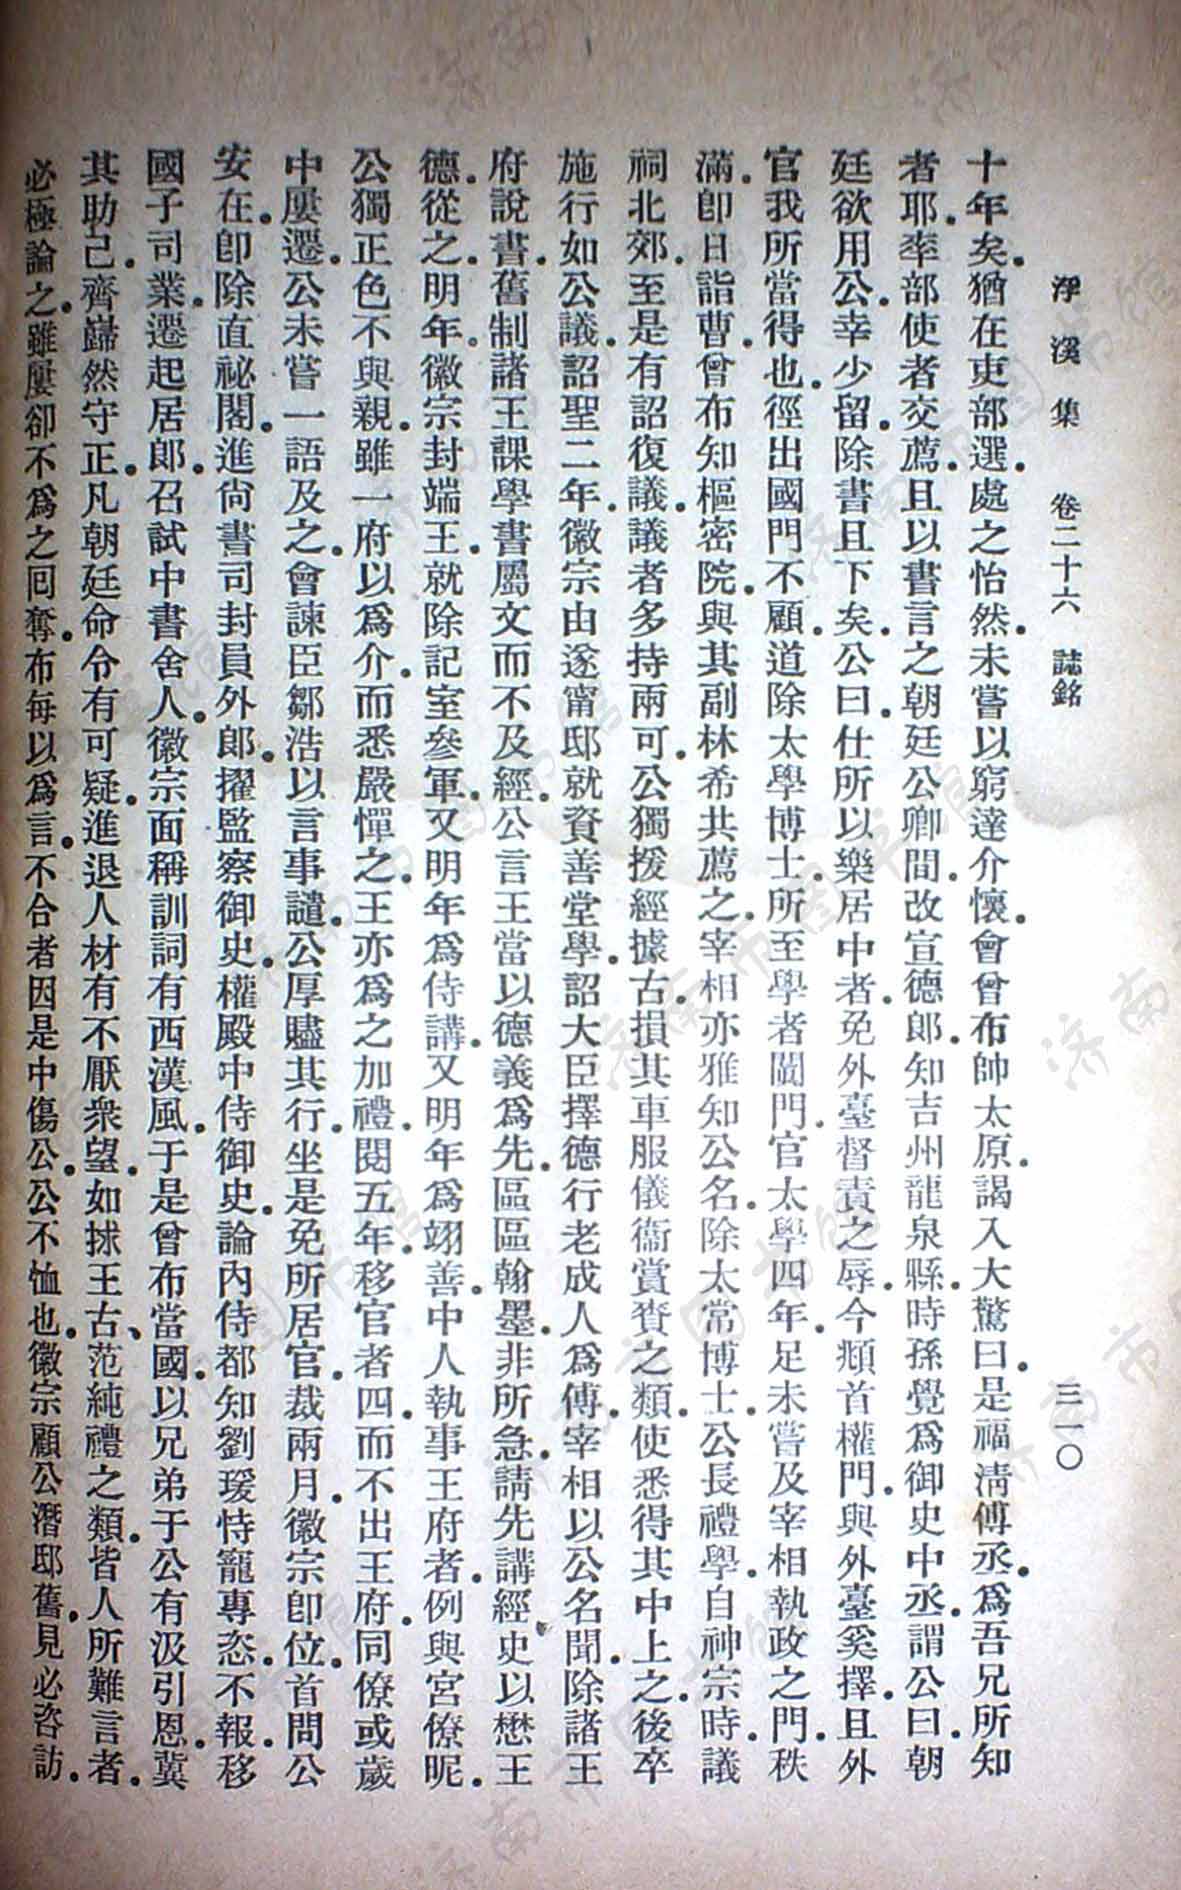 浮溪集 卷二十六 誌銘 三一〇
十年矣.猶在吏部選.處之怡然.未嘗以窮達介懷.會曾布帥太原.謁入大驚曰.是福淸傅丞.爲吾兄所知
者耶.率部使者交薦.且以書言之朝廷公卿間.改宣德郎.知吉州龍泉縣.時孫覺爲御史中丞.謂公曰.朝
廷欲用公.幸少留.除書且下矣.公曰.仕所以樂居中者.免外臺督責之辱.今頫首權門.與外臺奚擇.且外
官我所當得也.徑出國門不顧.道除太學博士.所至學者闐門.官太學四年.足未嘗及宰相執政之門.秩
滿.卽日詣曹.曾布知樞密院.與其副林希共薦之.宰相亦雅知公名.除太常博士.公長禮學.自神宗時.議
祠北郊.至是有詔復議.議者多持兩可.公獨援經據古.損其車服儀衞賞賚之類.使悉得其中上之.後卒
施行如公議.詔聖二年.徽宗由遂甯邸就資善堂學.詔大臣擇德行老成人爲傅.宰相以公名聞.除諸王
府說書.舊制諸王課學書屬文而不及經.公言王當以德義爲先.區區翰墨.非所急.請先講經史以懋王
德.從之.明年.徽宗封端王.就除記室參軍.又明年爲侍講.又明年爲翊善.中人執事王府者.例與宮僚昵.
公獨正色不與親.雖一府以爲介.而悉嚴憚之.王亦爲之加禮.閱五年.移官者四.而不出王府.同僚或歲
中屢遷.公未嘗一語及之.會諫臣鄒浩以言事譴.公厚贐其行.坐是免所居官.裁兩月.徽宗卽位.首問公
安在.卽除直祕閣.進尙書司封員外郎.擢監察御史.權殿中侍御史.論內侍都知劉瑗恃寵專恣.不報.移
國子司業.遷起居郎.召試中書舍人.徽宗面稱訓詞有西漢風.于是曾布當國.以兄弟于公有汲引恩.冀
其助己.齊巋然守正.凡朝廷命令有可疑.進退人材有不厭衆望.如捄王古、范純禮之類.皆人所難言者.
必極論之.雖屢卻不爲之囘奪.布每以爲言.不合者因是中傷公.公不恤也.徽宗顧公潛邸舊.見必咨訪.